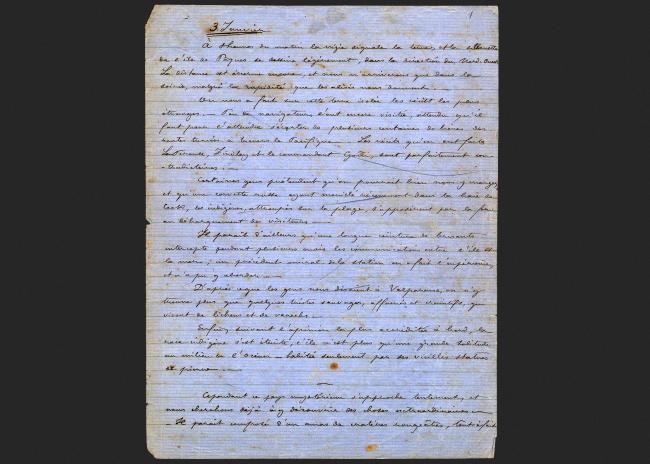 3 Janvier
1
À 8 heures du matin la vigie signale la terre, et la silhouette
de l'île de Pâques se dessine légèrement, dans la direction du Nord-Ouest
La distance est encore, et nous n'arriverons que dans la
soirée, malgré la rapidité que les alizés nous donnent. —
On nous a fait sur cette terre isolée les récits les plus
étranges. — Peu de navigateurs l'ont encore visitée, attendu qu'il
faut pour l'atteindre s'écarter de plusieurs centaines de lieues des
routes suivies à travers le Pacifique — Les récits qu'en ont faits
Lapérouse, et le commandant, sont parfaitement con-
-tradictoires. —
Certaines gens prétendent qu'on pourrait bien nous y manger,
et qu'une corvette russe ayant mouillé récemment dans la baie de
Cook, les indigènes, attroupés sur la plage, s'opposèrent par la force
au débarquement des visiteurs —
Il paraît d'ailleurs qu'une longue ceinture de brisants
intercepte pendant plusieurs mois les communications entre l'île et
la mer; un précédent amiral de la station en a fait l'expérience,
et n'a pu y aborder. —
D'après ce que les gens nous disaient à Valparaiso, on n'y
trouve plus que quelques tristes sauvages, affamés et craintifs, qui
vivent de lichens et de varechs. —
Enfin, suivant l'opinion la plus accréditée à bord, la
race indigène s'est éteinte, l'île n'est plus qu'une grande solitude
au milieu de l'Océan — habitée seulement par ses vieilles statues
de pierre — —
Cependant ce pays mystérieux s'approche lentement, et
nous cherchons déjà à y découvrir des choses extraordinaires —
— Il paraît composé d'un amas de cratères rougeâtres, tout à fait